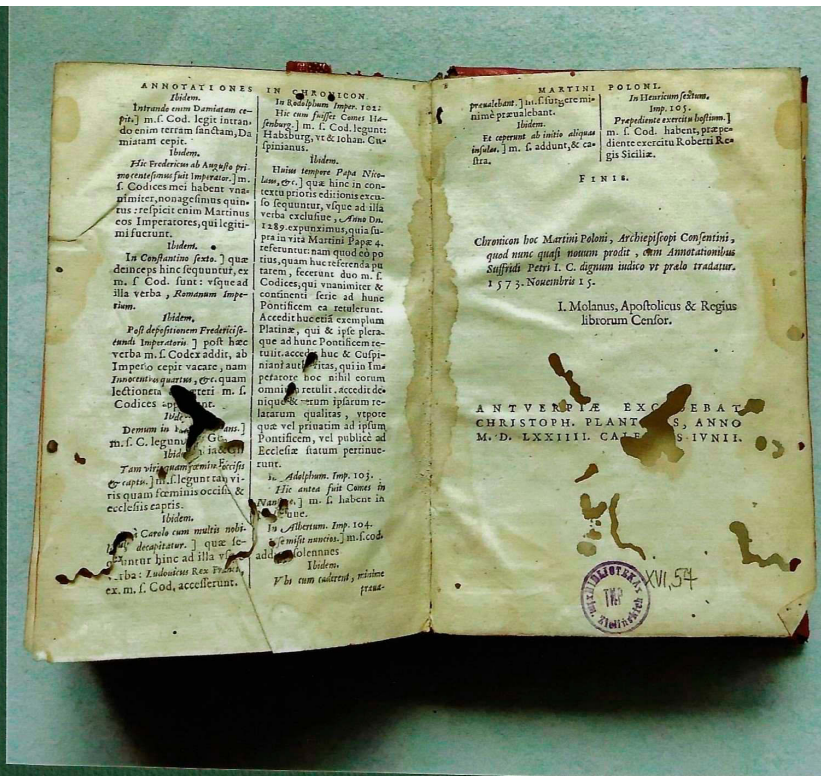 ANNOTATIONES IN CHRONICON.
Ibidem.
Intrando enim Damiatam ce-
pit.] m. ſ. Cod. legit intran-
do enim terram ſanctam, Da
miatam cepit.
Ibidem.
Hic Fredericus ab Auguſto pri
mo centeſimus fuit Imperator.] m.
ſ. Codices mei habent vna-
nimiter, nonageſimus quin-
tus: reſpicit enim Martinus
eos Imperatores, qui legiti-
mi fuerunt.
Ibidem.
In Conſtantino ſexto. ] quæ
deinceps hinc ſequuntur, ex
m. ſ Cod. ſunt: vſque ad
illa verba, Romanum Impe-
rium.
Ibidem.
Poſt depoſitionem Frederici ſe-
cundi Imperatoris ] poſt hæc
verba m. ſ. Codex addit, ab
Imperio cepit vacare, nam
Innocentius quartus, &c. quam
lectionem
Codices
Demum in
m. ſ. C. legunt
Tam viris quam fœminis occiſis
& captis.] m. ſ. legunt tam vi-
ris quam fœminis occiſis, &
eccleſiis captis.
Ibidem.
Carolo cum multis nobi-
decapitatur. ] quæ ſe-
quuntur hinc ad illa vſque
verba: Ludouicus Rex
ex. m. ſ. Cod, acceſſerunt.
In Rodolphum Imper. 102:
Hic cum fuiſſet Comes Ha-
ſenburg.] m. ſ. Cod. legunt:
Habsburg, vt & Iohan. Cu-
ſpinianus.
Ibidem.
Huius tempore Papa Nico-
laus, &c.] quæ hinc in con-
textu prioris editionis excu-
ſo ſequuntur, vſque ad illa
verba excluſiue, Anno Dn.
1289. expunximus, quia ſu-
pra in vita Martini Papæ 4.
referuntur: nam quod eo po
tius, quam huc referenda pu
tarem, fecerunt duo m. ſ.
Codices, qui vnanimiter &
continenti ſerie ad hunc
Pontificem ea retulerunt.
Accedit huc etiā exemplum
Platinæ, qui & ipſe plera-
que ad hunc Pontificem re-
tulit. accedit huc & Cuſpi-
niani autoritas, qui in Im-
peratore hoc nihil eorum
omnium retulit. accedit de-
nique & rerum ipſarum re-
latarum qualitas, vtpote
quæ vel priuatim ad ipſum
Pontificem, vel publicè ad
Eccleſiæ ſtatum pertinue-
runt.
In Adolphum. Imp. 103.
Hic antea fuit Comes in
m. ſ. habent in
In Albertum. Imp. 104.
miſit nuncios.] m. ſ. cod.
addunt ſolennnes
Ibidem.
Vbi cum caderent, minime
præua-
MARTINI POLONI.
præualebant.] m. ſ. ſurgere mi-
nimè præualebant.
Ibidem.
Et ceperunt ab initio aliquas
inſulas.] m. ſ. addunt, & ca-
ſtra.
In Henricum ſextum.
Imp. 105.
Præpediente exercitu hoſtium.]
m. ſ. Cod. habent, præpe-
diente exercitu Roberti Re-
gis Siciliæ.
FINIS.
Chronicon hoc Martini Poloni, Archiepiſcopi Conſentini,
quod nunc quaſi nouum prodit, cum Annotationibus
Suffridi Petri I. C. dignum iudico vt prælo tradatur.
1573. Nouembris 15.
I. Molanus, Apoſtolicus & Regius
librorum Cenſor.
ANTVERPIÆ
CHRISTOPH. ANNO
M. D. LXXIIII. IVNII.
BIBLIOTEKA
XVI,54